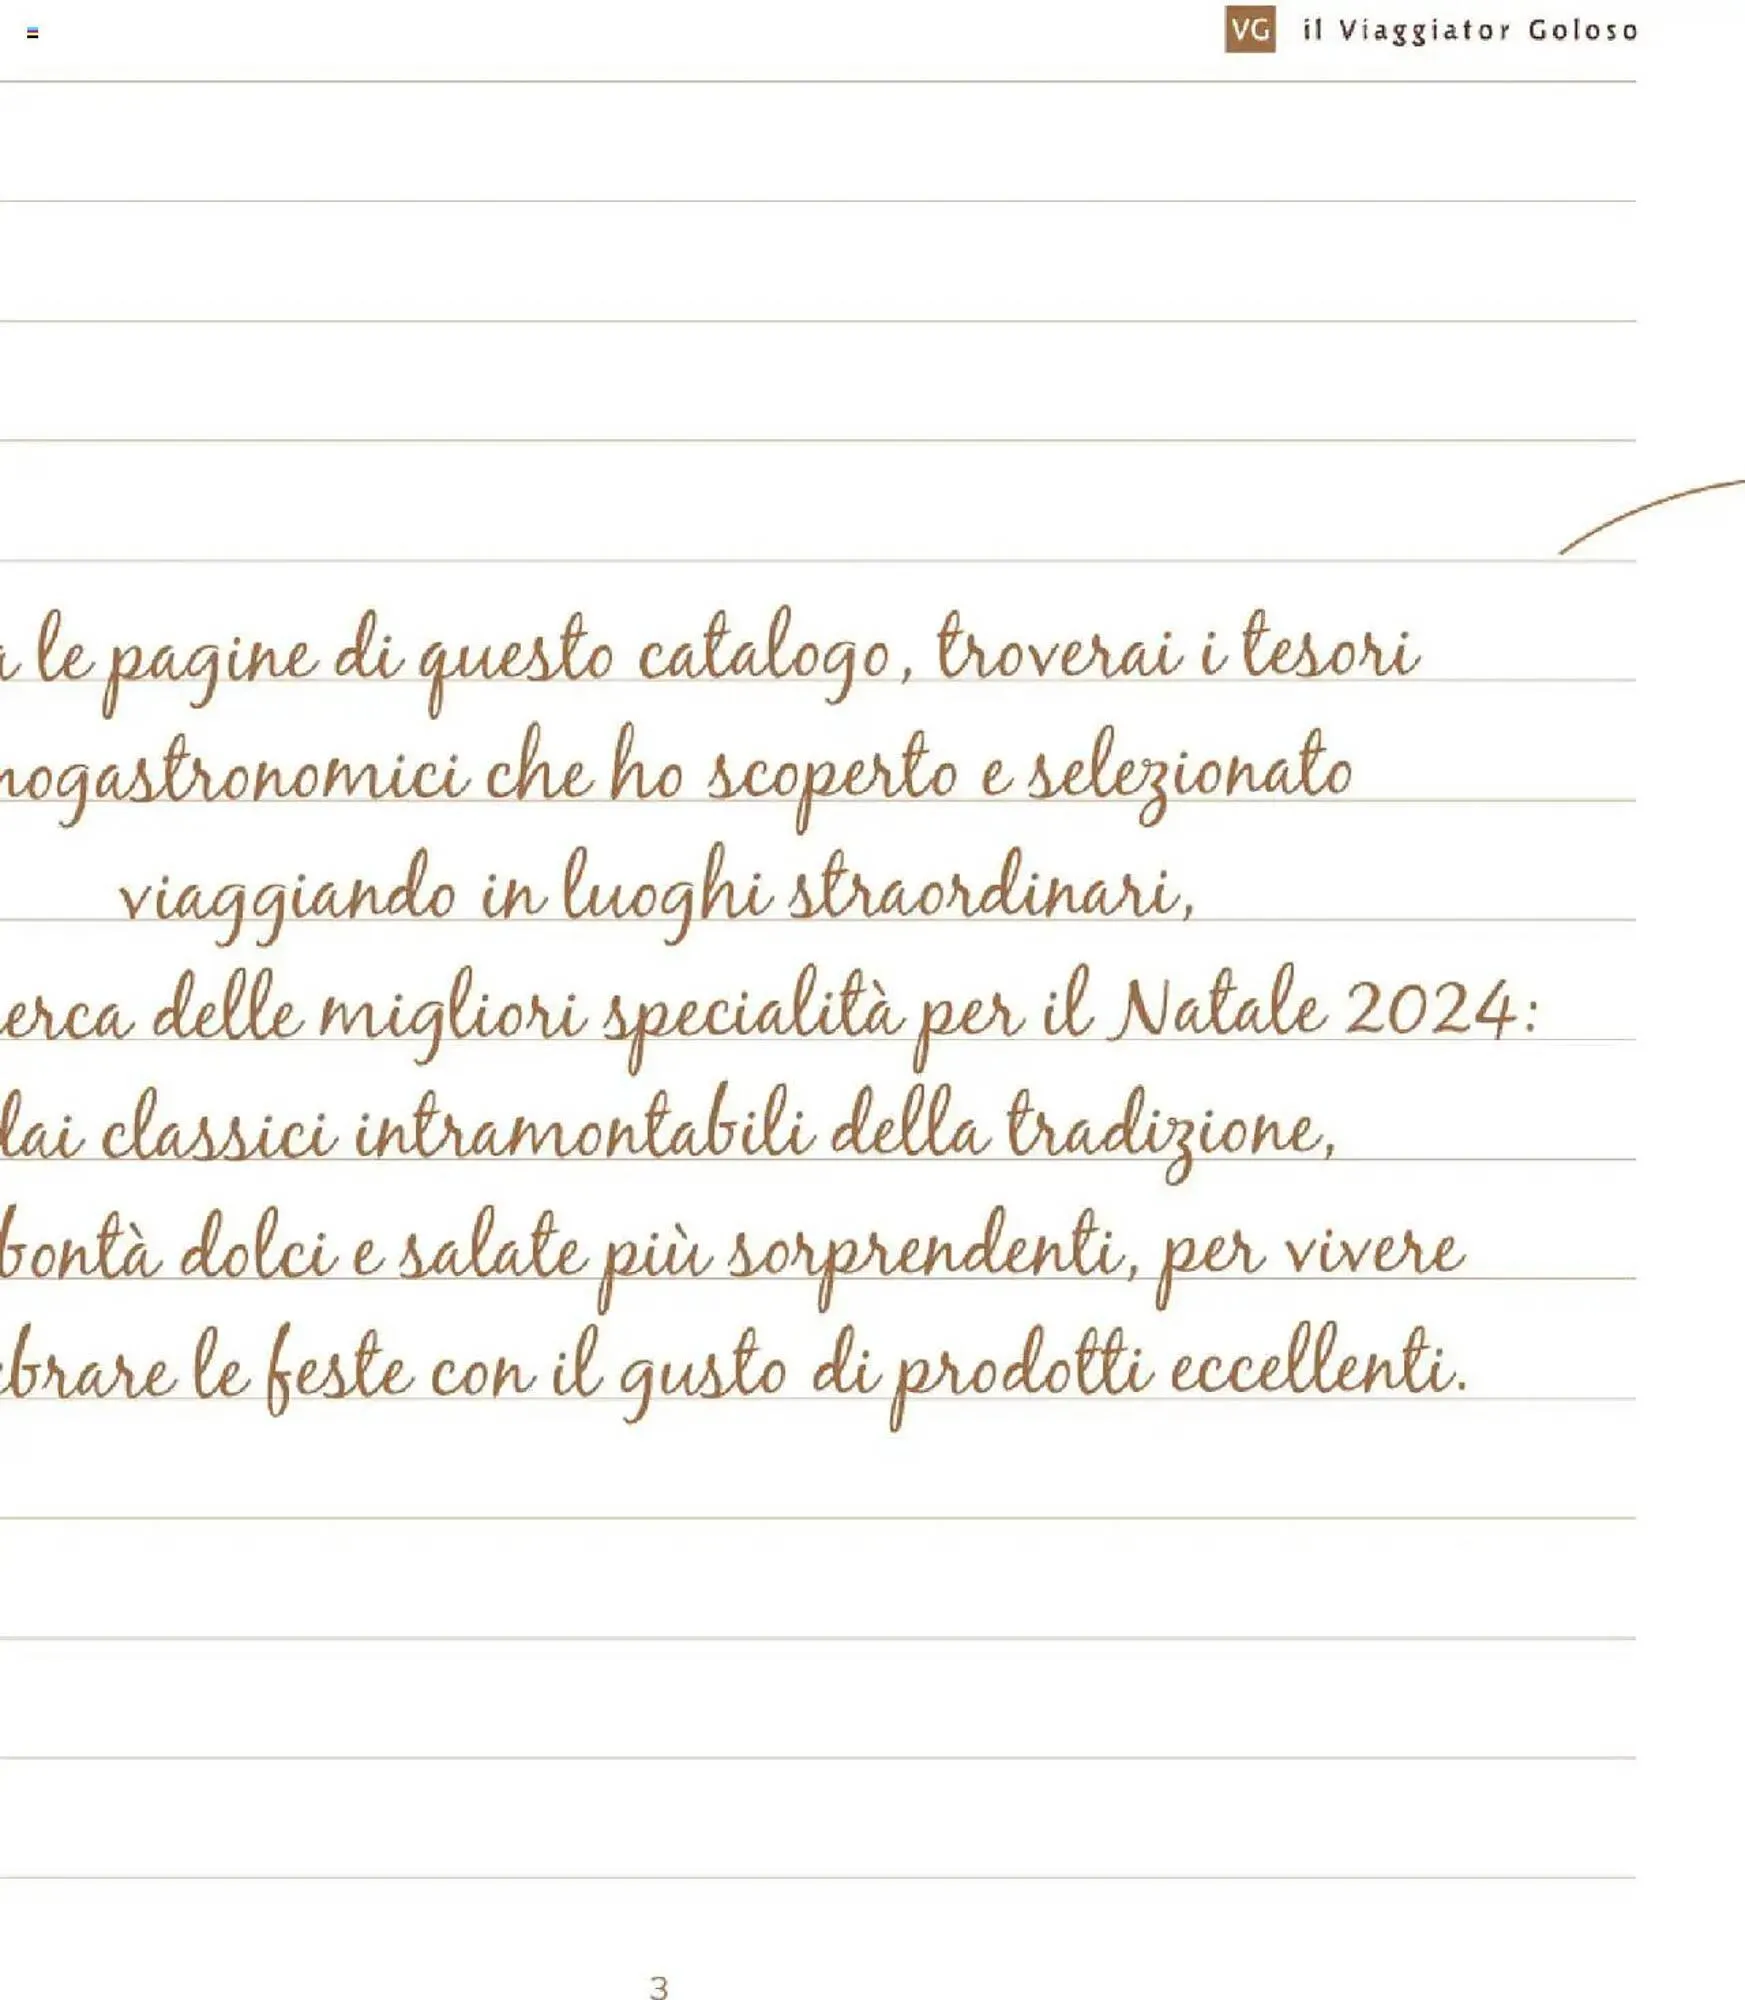 VG il Viaggiator Goloso
le pagine di questo catalogo, troverai i tesori
nogastronomici che ho scoperto e selezionato
viaggiando in luoghi straordinari,
erca delle migliori specialità per il Natale 2024:
dai classici intramontabili della tradizione,
bontà dolci e salate più sorprendenti, per vivere
ebrare le feste con il gusto di prodotti eccellenti.
3